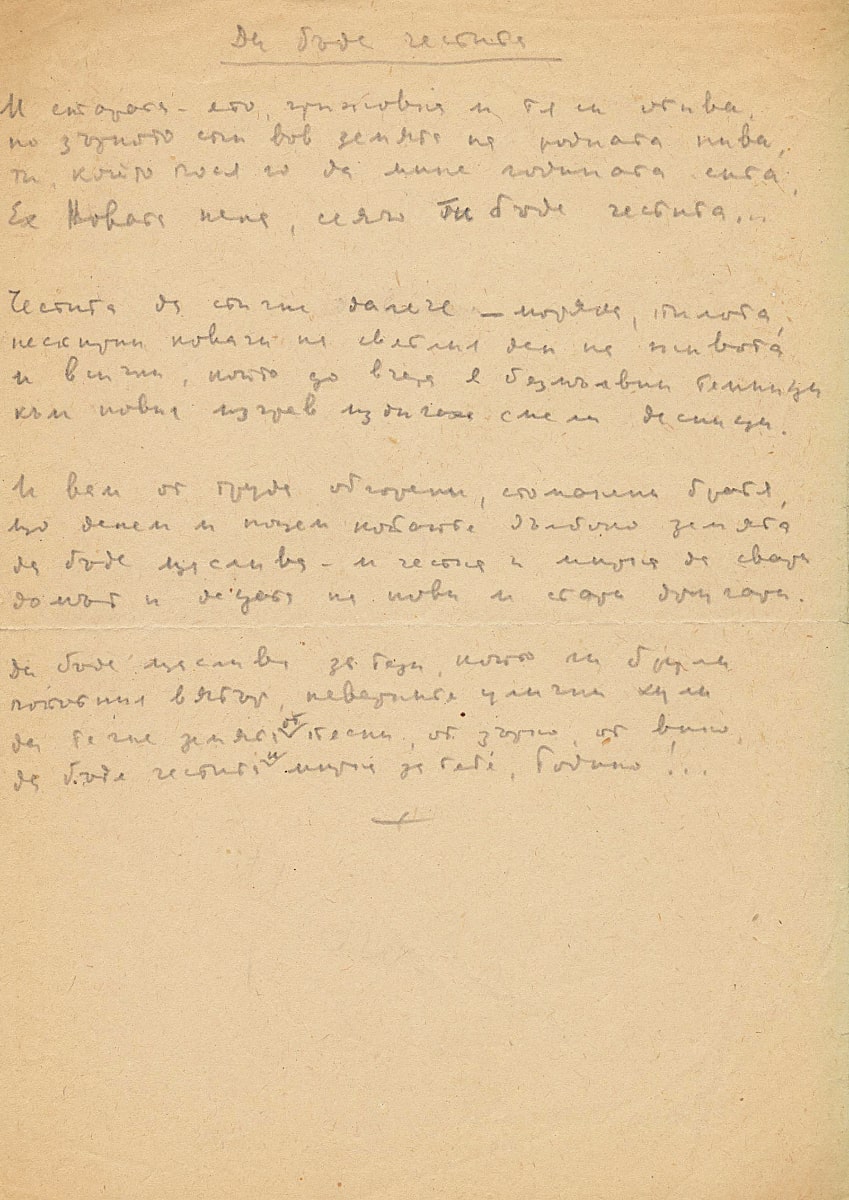 Да бъде честита
И старата - ето, грижовна и тя си отива,
но зърното спи вов земята на родната нива,
ти, който пося го да мине годината сита,
Ех Новата нека, селяко ти бъде честита...
Честита да стигне далече - моряка, пилота,
нескърни ковачи на светлия ден на живота
и всички, които до вчера в безмълвни тъмници
към новия изгрев издигаха смели десници.
И вам от труда обгорени, стоманени братя,
що денем и нощем копаете дълбоко земята
да бъде щаслива - и честна и мирна да свари
домът и децата на нови и стари другари.
Да бъде щаслива за тези, които ли брули
вятър, неверните улични хули
да течне земята от песни, от зърно, от вино,
да бъде честита и мирна за тебе, Родино!...